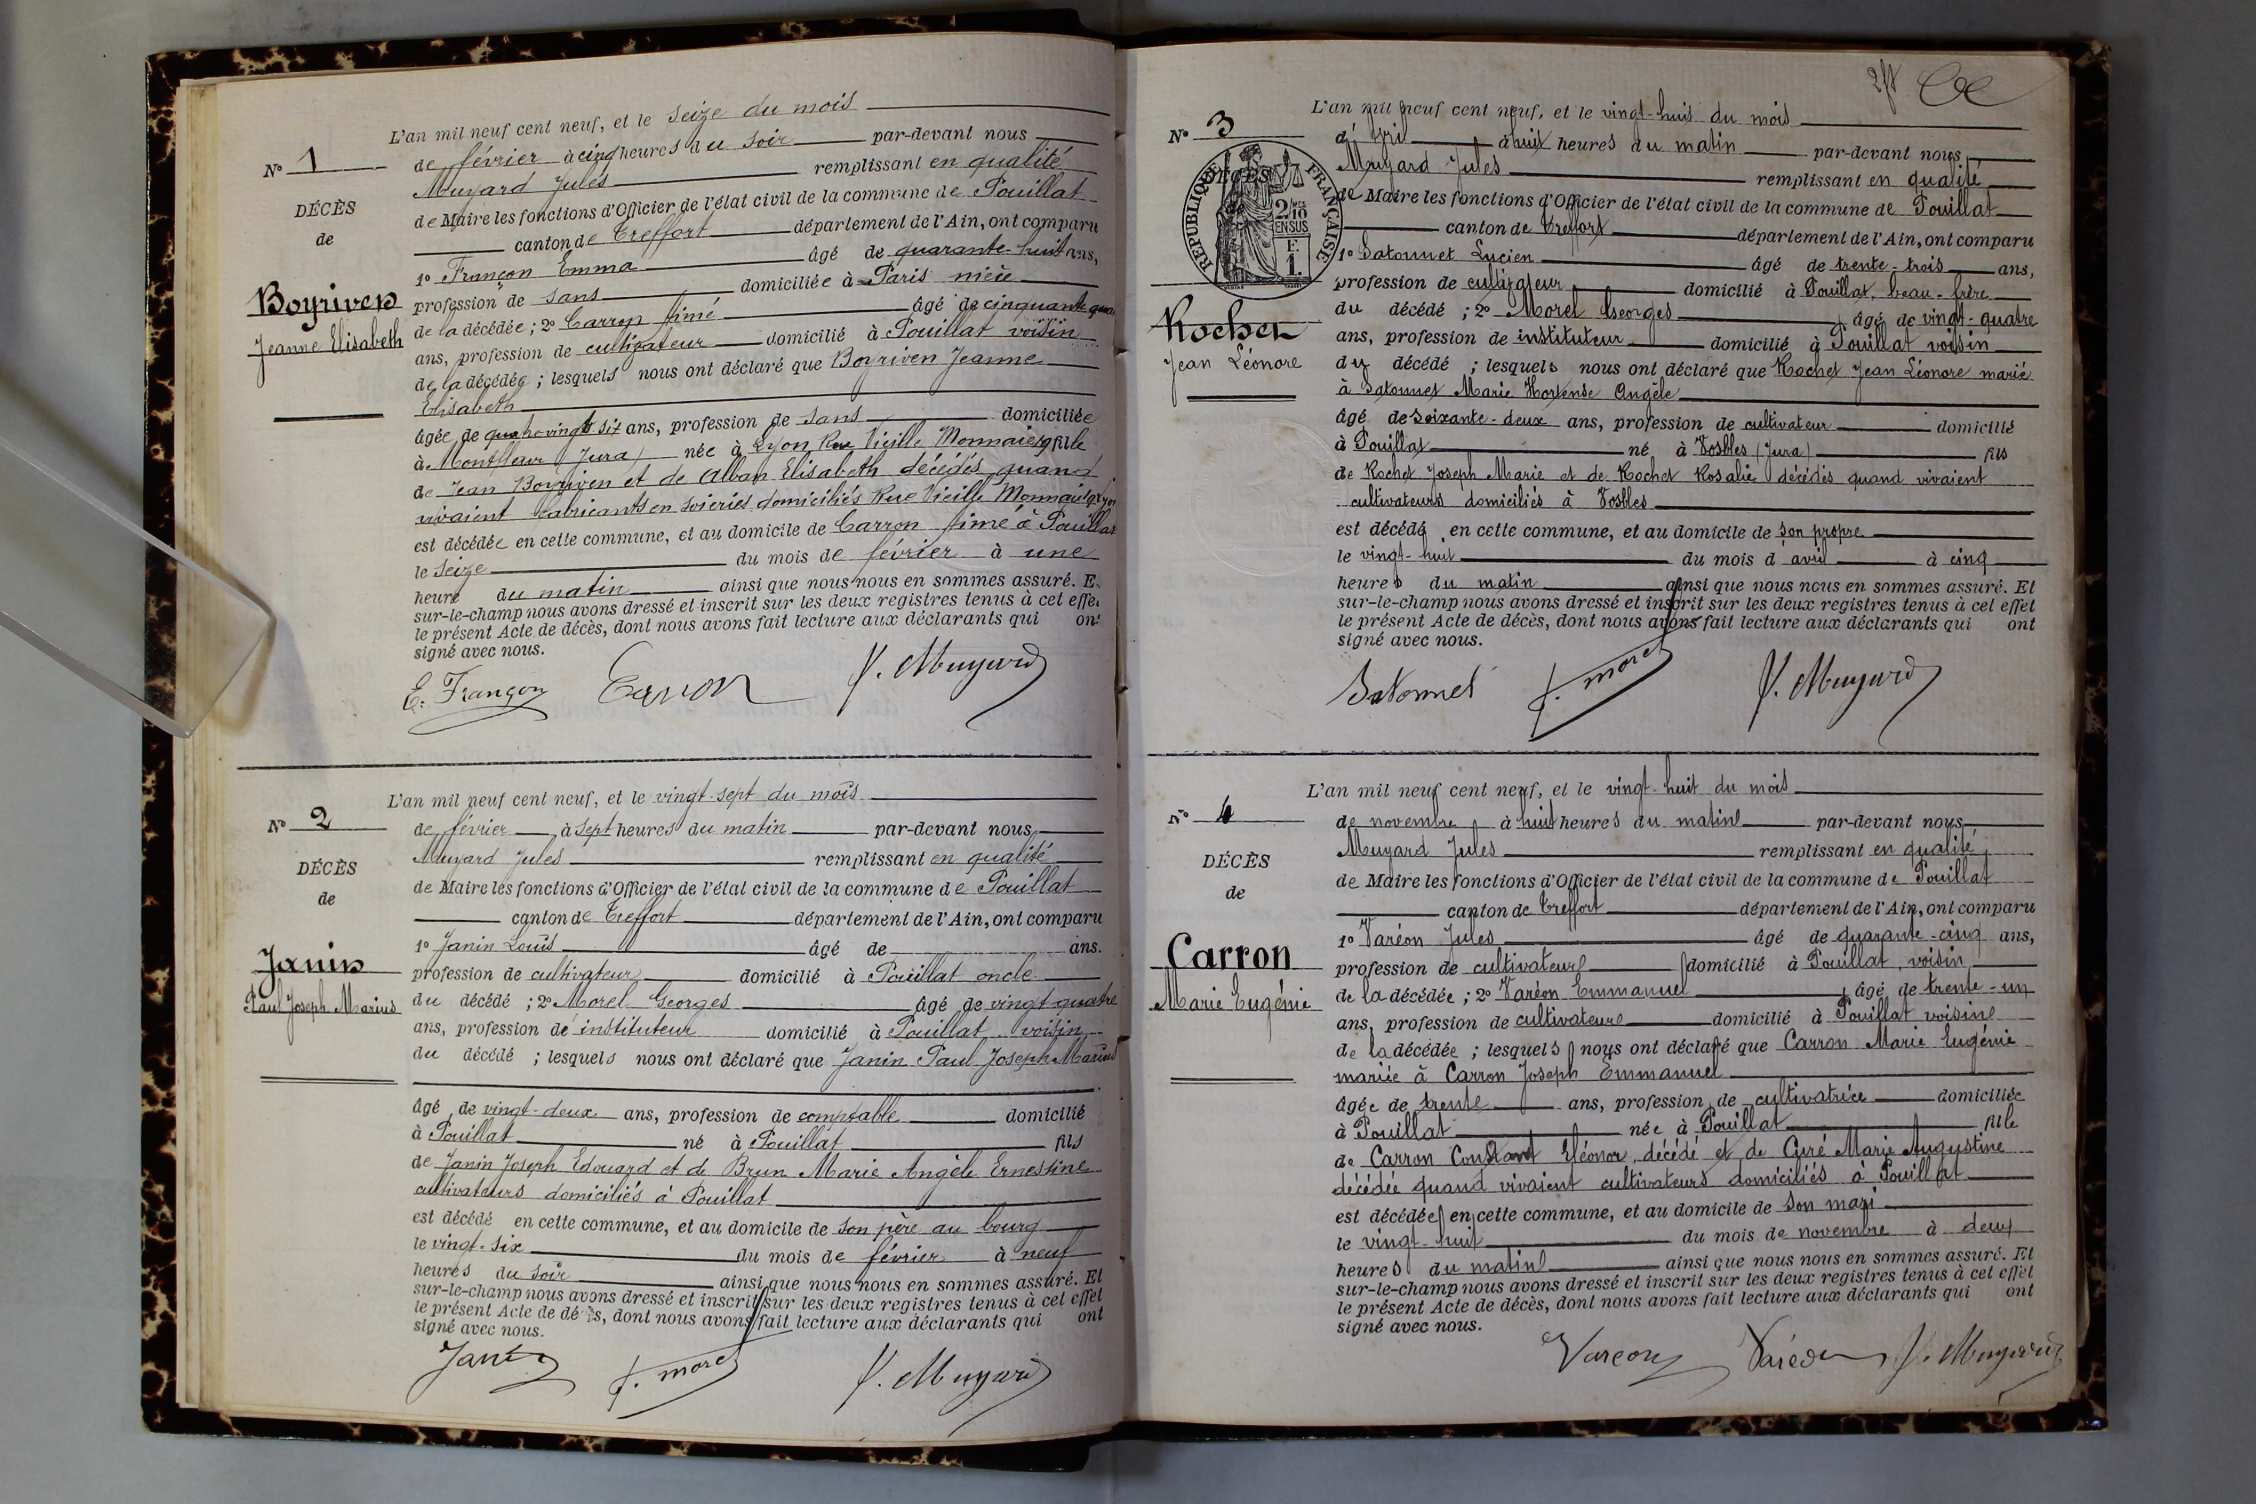 L'an mil neuf cent neuf, et le seize du mois
No 1
de février à cinq heures du soir par-devant nous
Muyard Jules remplissant en qualité
DÉCÈS
de Maire les fonctions d'Officier de l'état civil de la commune de Pouillat
de
canton de Treffort département de l'Ain, ont comparu
1o Françon Emma âgé de quarante-huit ans,
Boyriven
profession de sans domiciliée à Paris nièce
Jeanne Elisabeth
de la décédée ; 2o Carron Aimé âgé de cinquante
ans, profession de cultivateur domicilié à Pouillat voisin
de la décédée ; lesquels nous ont déclaré que Boyriven Jeanne
Elisabeth
âgée de six ans, profession de sans domiciliée
à Montfleur Jura) née à Lyon Rue Vieille Monnaie fille
de Jean Boyriven et de Alban Elisabeth décédés quand
vivaient fabricants en soieries domiciliés Rue Vieille Monnaie
est décédée en cette commune, et au domicile de Carron Aimé à Pouillat
le seize du mois de février à une
heure du matin ainsi que nous nous en sommes assuré. E
sur-le-champ nous avons dressé et inscrit sur les deux registres tenus à cet effe
le présent Acte de décès, dont nous avons fait lecture aux déclarants qui on
signé avec nous.
E. Françon Carron J. Muyard
L'an mil neuf cent neuf, et le vingt-sept du mois
No 2
de février à sept heures du matin par-devant nous
Muyard Jules remplissant en qualité
DÉCÈS
de Maire les fonctions d'Officier de l'état civil de la commune de Pouillat
de
canton de Treffort département de l'Ain, ont comparu
1o Janin Louis âgé de ans.
Janin
profession de cultivateur domicilié à Pouillat oncle
Paul Joseph Marius
du décédé ; 2o Morel Georges âgé de vingt-quatre
ans, profession de instituteur domicilié à Pouillat voisin
du décédé ; lesquels nous ont déclaré que Janin Paul Joseph Marius
âgé de vingt-deux ans, profession de comptable domicilié
à Pouillat né à Pouillat fils
de Janin Joseph Edouard et de Brun Marie Angèle Ernestine
cultivateurs domiciliés à Pouillat
est décédé en cette commune, et au domicile de son père au bourg
le vingt-six du mois de février à neuf
heures du soir ainsi que nous nous en sommes assuré. Et
sur-le-champ nous avons dressé et inscrit sur les deux registres tenus à cet effet
le présent Acte de décès, dont nous avons fait lecture aux déclarants qui ont
signé avec nous.
Janin G. Morel J. Muyard
L'an mil neuf cent neuf, et le vingt-huit du mois
No 3
d'avril à huit heures du matin par-devant nous
Muyard Jules remplissant en qualité
RÉPUBLIQUE FRANÇAISE
2/10 EN SUS
F. 1.
de Maire les fonctions d'Officier de l'état civil de la commune de Pouillat
canton de Treffort département de l'Ain, ont comparu
1o Satonnet Lucien âgé de trente-trois ans,
profession de cultivateur domicilié à Pouillat, beau-frère
Rochet
du décédé ; 2o Morel Georges âgé de vingt-quatre
Jean Léonore
ans, profession de instituteur domicilié à Pouillat voisin
du décédé ; lesquels nous ont déclaré que Rochet Jean Léonore marié
à Satonnet Marie Hortense Angèle
âgé de soixante-deux ans, profession de cultivateur domicilié
à Pouillat né à Vosbles (Jura) fils
de Rochet Joseph Marie et de Rochet Rosalie décédés quand vivaient
cultivateurs domiciliés à Vosbles
est décédé en cette commune, et au domicile de son propre
le vingt-huit du mois d'avril à cinq
heures du matin ainsi que nous nous en sommes assuré. Et
sur-le-champ nous avons dressé et inscrit sur les deux registres tenus à cet effet
le présent Acte de décès, dont nous avons fait lecture aux déclarants qui ont
signé avec nous.
Satonnet G. Morel J. Muyard
L'an mil neuf cent neuf, et le vingt-huit du mois
No 4
de novembre à huit heures du matin par-devant nous
Muyard Jules remplissant en qualité
DÉCÈS
de Maire les fonctions d'Officier de l'état civil de la commune de Pouillat
de
canton de Treffort département de l'Ain, ont comparu
1o Varéon Jules âgé de quarante-cinq ans,
Carron
profession de cultivateur domicilié à Pouillat, voisin
Marie Eugénie
de la décédée ; 2o Varéon Emmanuel âgé de trente-un
ans, profession de cultivateur domicilié à Pouillat voisin
de la décédée ; lesquels nous ont déclaré que Carron Marie Eugénie
mariée à Carron Joseph Emmanuel
âgée de trente ans, profession de cultivatrice domiciliée
à Pouillat née à Pouillat fille
de Carron Constant Eléonor, décédé et de Curé Marie Augustine
décédée quand vivaient cultivateurs domiciliés à Pouillat
est décédée en cette commune, et au domicile de son mari
le vingt-huit du mois de novembre à deux
heures du matin ainsi que nous nous en sommes assuré. Et
sur-le-champ nous avons dressé et inscrit sur les deux registres tenus à cet effet
le présent Acte de décès, dont nous avons fait lecture aux déclarants qui ont
signé avec nous.
Vareon Varéon J. Muyard